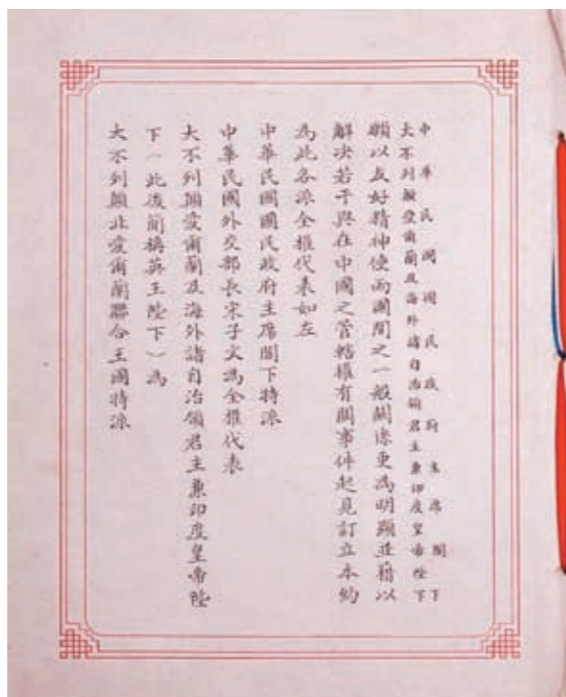 中華民國國民政府主席閣下
大不列顛愛爾蘭及海外諸自治領君主兼印度皇帝陛下
願以友好精神使兩國間之一般關係更為明顯並藉以
解決若干與在中國之管轄權有關事件起見訂立本約
為此各派全權代表如左
中華民國國民政府主席閣下特派
中華民國外交部長宋子文為全權代表
大不列顛愛爾蘭及海外諸自治領君主兼印度皇帝陛
下（此後簡稱英王陛下）為
大不列顛北愛爾蘭聯合王國特派